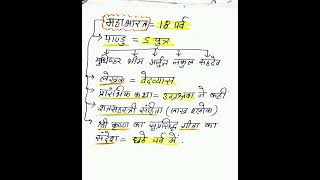 महाभारत = 18 पर्व
पाण्डु = 5 पुत्र
युधिष्ठिर भीम अर्जुन नकुल सहदेव
लेखक = वेदव्यास
प्रारंभिक कथा = उग्रश्रवा ने कही
शतसहस्त्री संहिता (लाख श्लोक)
श्री कृष्ण का सुप्रसिद्ध गीता का
संदेश = छठे पर्व में.